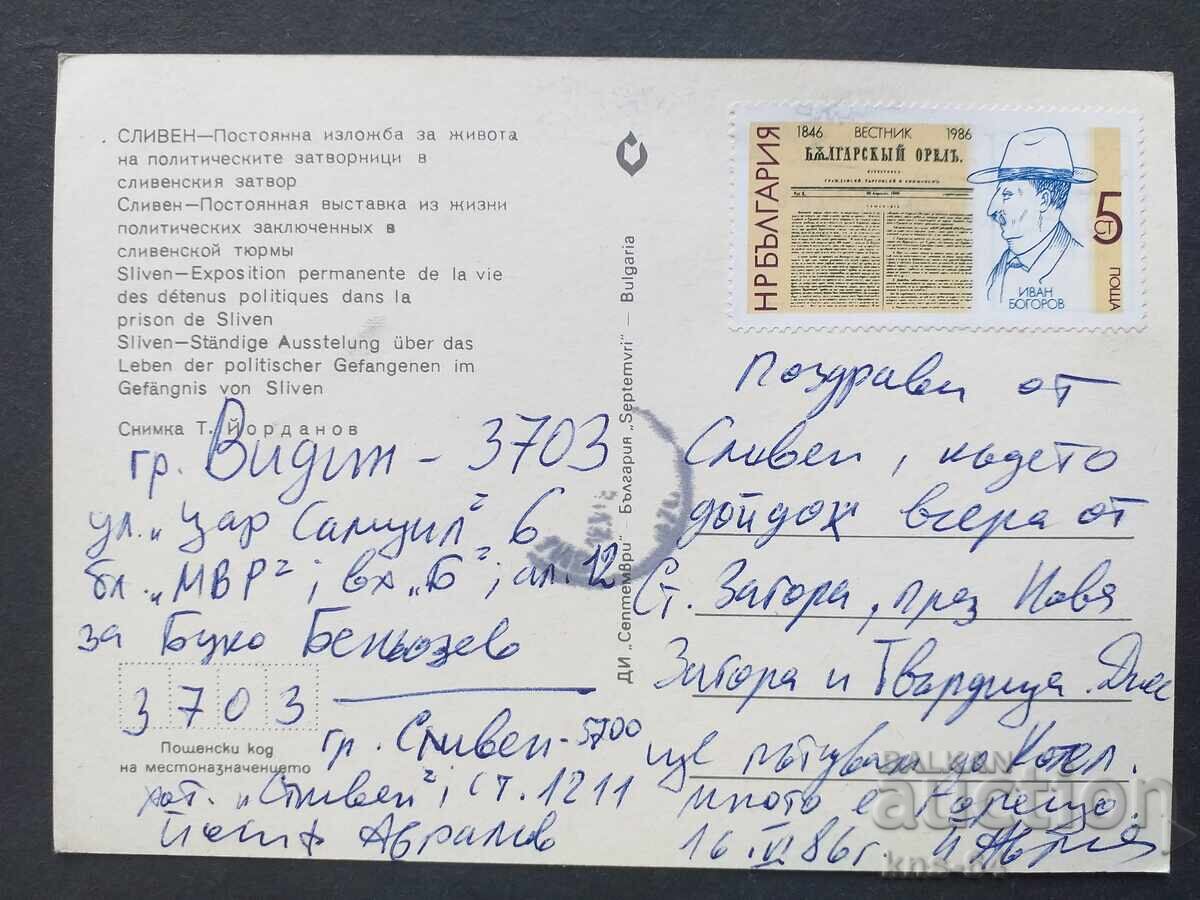 СЛИВЕН—Постоянна изложба за живота
на политическите затворници в
сливенския затвор
Сливен—Постоянная выставка из жизни
политических заключенных в
сливенской тюрмы
Sliven—Exposition permanente de la vie
des détenus politiques dans la
prison de Sliven
Sliven—Ständige Ausstelung über das
Leben der politischer Gefangenen im
Gefängnis von Sliven
Снимка Т. Йорданов
гр. Видин - 3703
ул. „Цар Самуил" 6
бл. „МВР"; вх „Б"; ап. 12
за Буко Беньозево
3703
Пощенски код
на местоназначението
гр. Сливен - 5700
хот. „Сливен"; ст. 1211
Йосиф Аврамов
ДИ „Септември" — България „Septemvri" — Bulgaria
НР БЪЛГАРИЯ
1846 ВЕСТНИК 1986
БѪЛГАРСКЫЙ ОРЕЛЪ.
ИВАН
БОГОРОВ
5 СТ
ПОЩА
Поздрави от
Сливен, където
дойдох вчера от
Ст. Загора, през Нова
Загора и Твардица. Днес
ще пътувам до Котел.
Много е горещо.
16.VI.86г.
BALKAN
auction
kns-